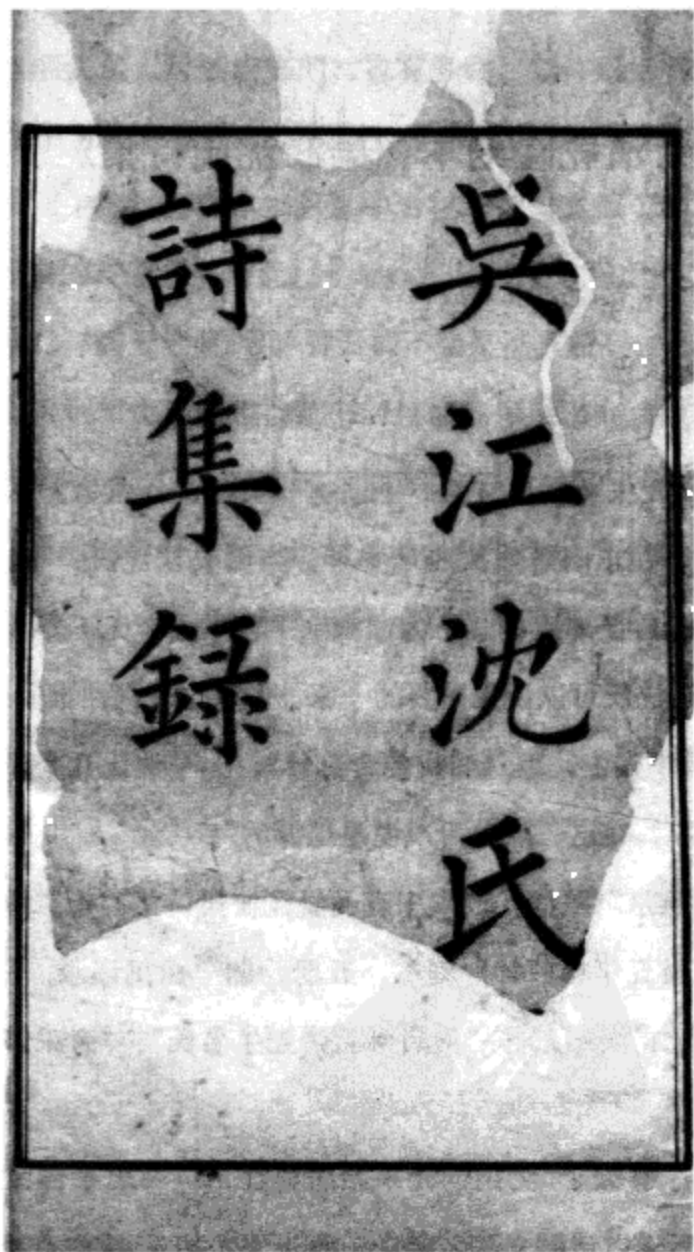 吳江沈氏
詩集錄